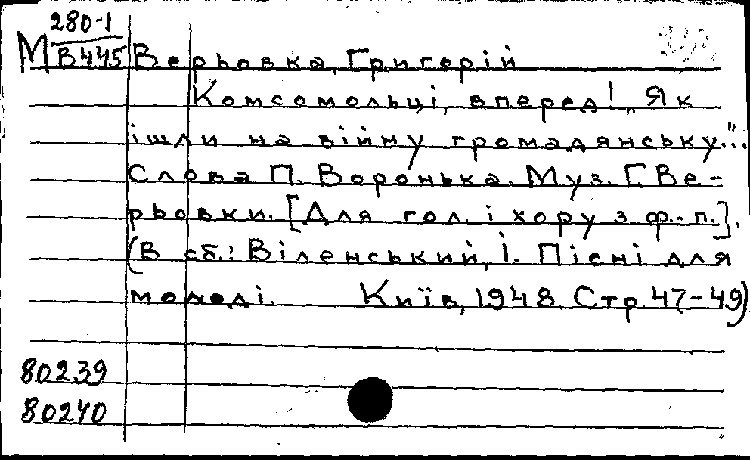 280-1
М В445 Верьовка, Григорій
Комсомольці, вперед! „Як
ішли на війну громадянську..."
Слова П. Воронька. Муз. Г. Ве-
рьовки. [Для гол. і хору з ф.-п.].
(В сб.: Віленський, І. Пісні для
молоді. Київ, 1948. Стр. 47-49)
80239
80240